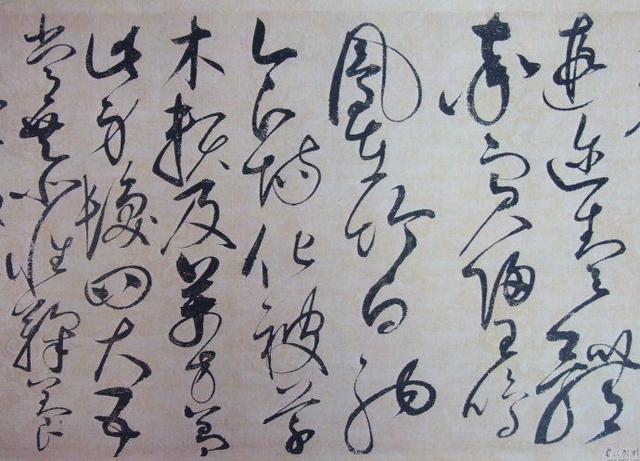 遐迩壹體
率賓歸王鳴
鳳在白駒
食場化被草
木賴及萬方蓋
此身髮四大五
常恭惟鞠養